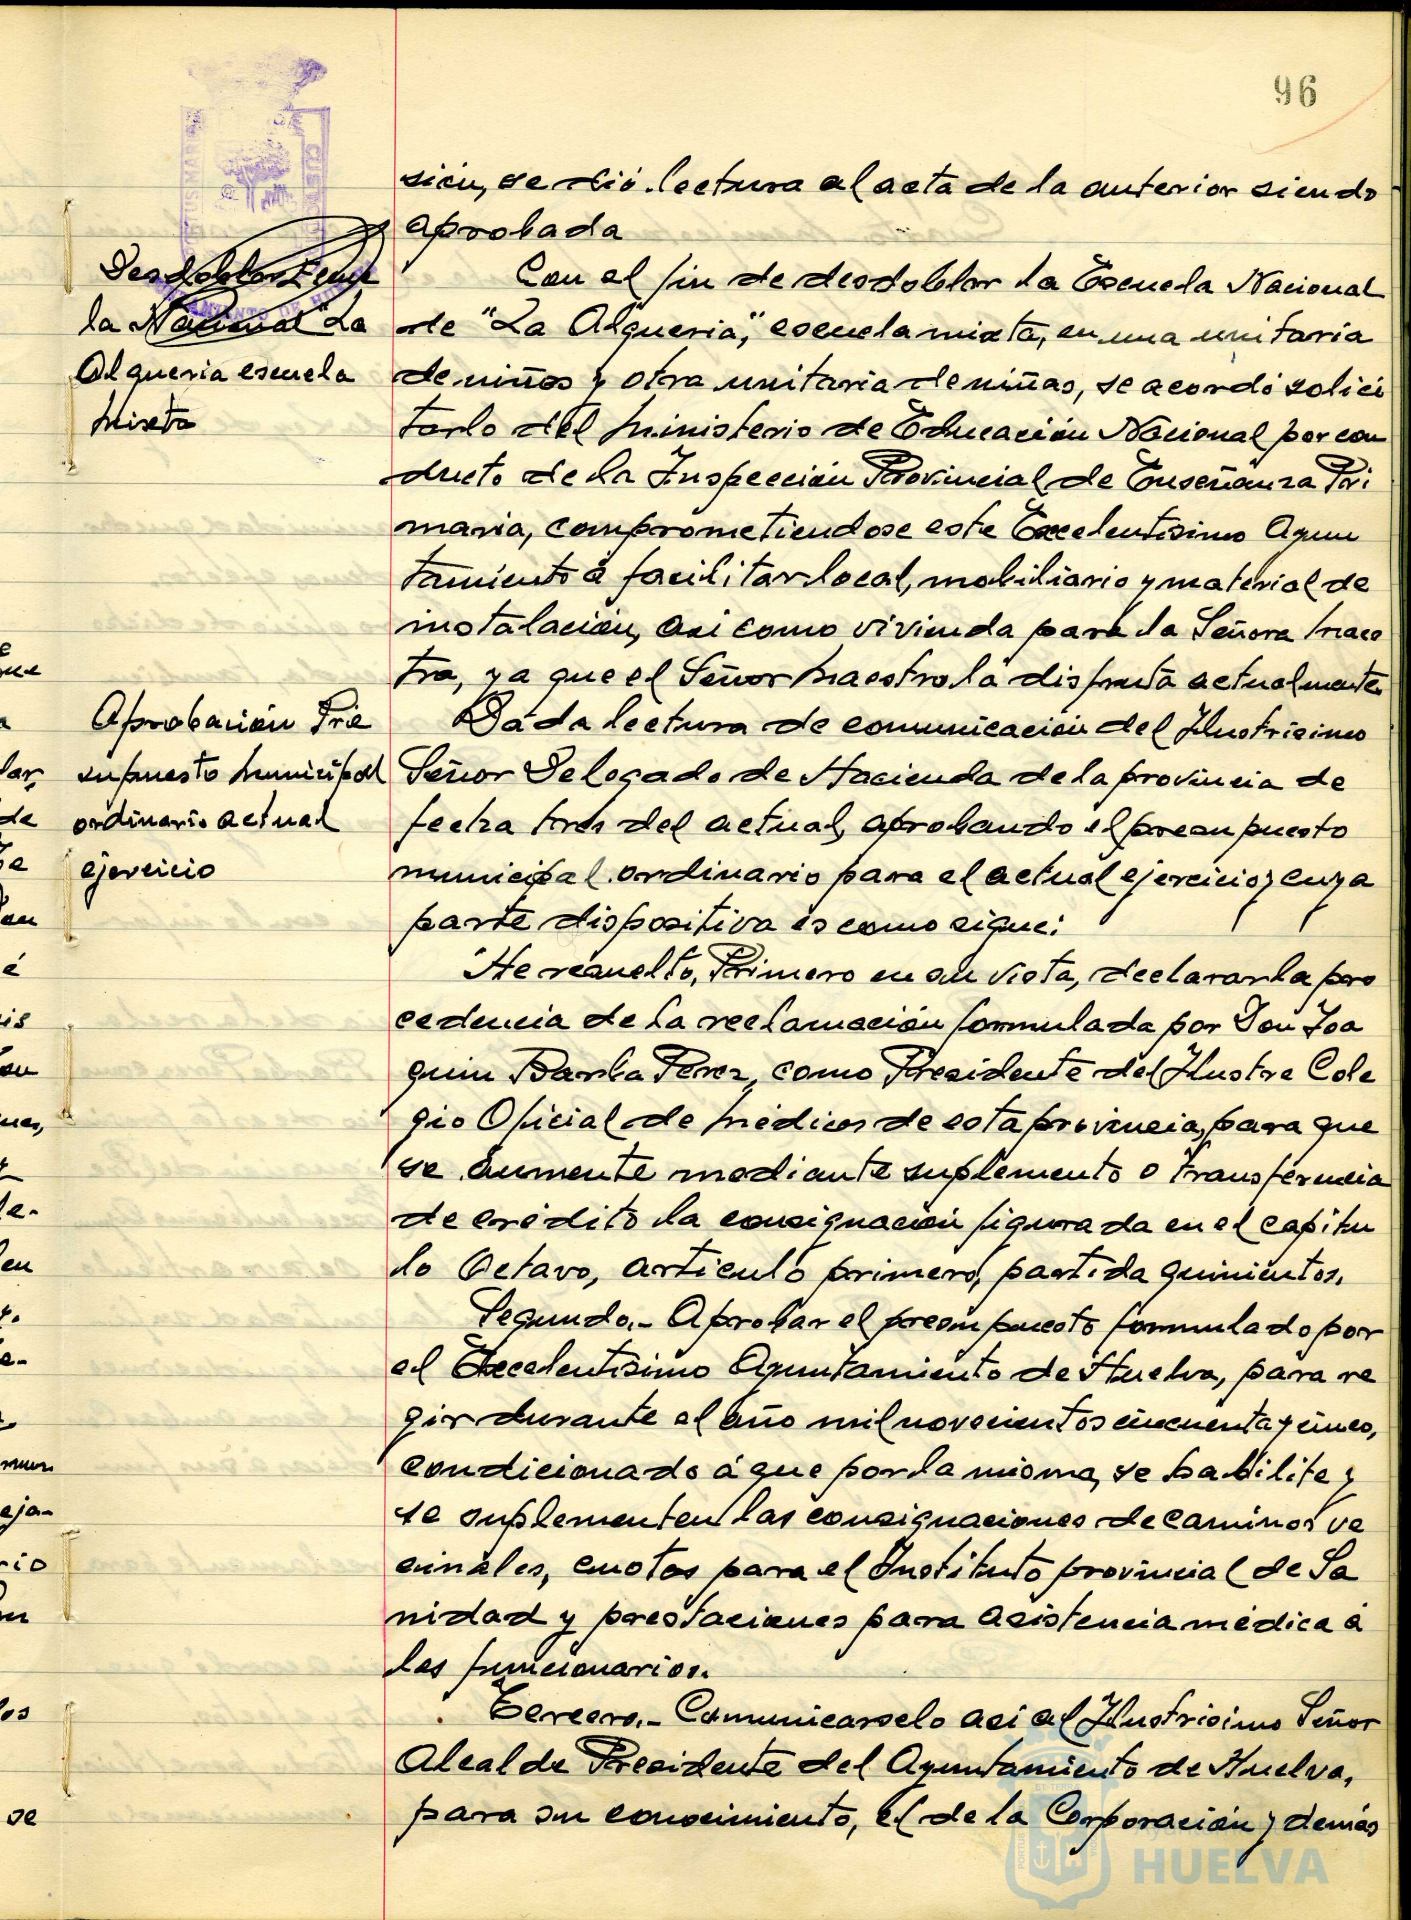 96
sión, se dió lectura al acta de la anterior siendo
aprobada
Desdoblar Escue
la Nacional "La
Alqueria escuela
Mixta
Con el fin de desdoblar la Escuela Nacional
de "La Alqueria", escuela mixta, en una unitaria
de niños y otra unitaria de niñas, se acordó solici
tarlo del Ministerio de Educación Nacional por con
ducto de la Inspección Provincial de Enseñanza Pri
maria, comprometiendose este Excelentísimo Ayun
tamiento á facilitar local, mobiliario y material de
instalación, asi como vivienda para la Señora Maes
tra, ya que el Señor Maestro la disfruta actualmente
Aprobación Pre
supuesto Municipal
ordinario actual
ejercicio
Dada lectura de comunicación del Ilustrisimo
Señor Delegado de Hacienda de la provincia de
fecha tres del actual, aprobando el presupuesto
municipal ordinario para el actual ejercicio y cuya
parte dispositiva es como sigue:
"He resuelto, Primero en su vista, declarar la pro
cedencia de la reclamación formulada por Don Joa
quin Barba Perez, como Presidente del Ilustre Cole
gio Oficial de Médicos de esta provincia, para que
se aumente mediante suplemento o transferencia
de crédito la consignación figurada en el capítu
lo Octavo, artículo primero, partida quinientos.
Segundo.- Aprobar el presupuesto formulado por
el Excelentísimo Ayuntamiento de Huelva, para re
gir durante el año mil novecientos cincuenta y cinco,
condicionado á que por la misma, se habilite y
se suplementen las consignaciones de caminos ve
cinales, cuotas para el Instituto provincial de Sa
nidad y prestaciones para asistencia médica á
los funcionarios.
Tercero.- Comunicarselo asi al Ilustrisimo Señor
Alcalde Presidente del Ayuntamiento de Huelva,
para su conocimiento, el de la Corporación y demás
HUELVA